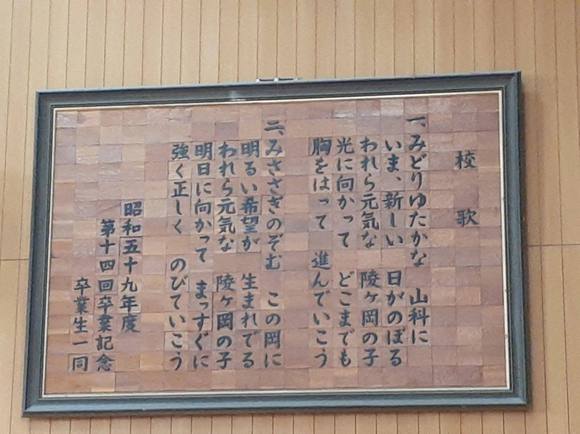 校歌
一、みどりゆたかな 山科に
いま、新しい 日がのぼる
われら元気な 陵ヶ岡の子
光に向かって どこまでも
胸をはって 進んでいこう
二、みささぎのぞむ この岡に
明るい希望が 生まれでる
われら元気な 陵ヶ岡の子
明日に向かって まっすぐに
強く正しく のびていこう
昭和五十九年度
第十四回卒業記念
卒業生一同